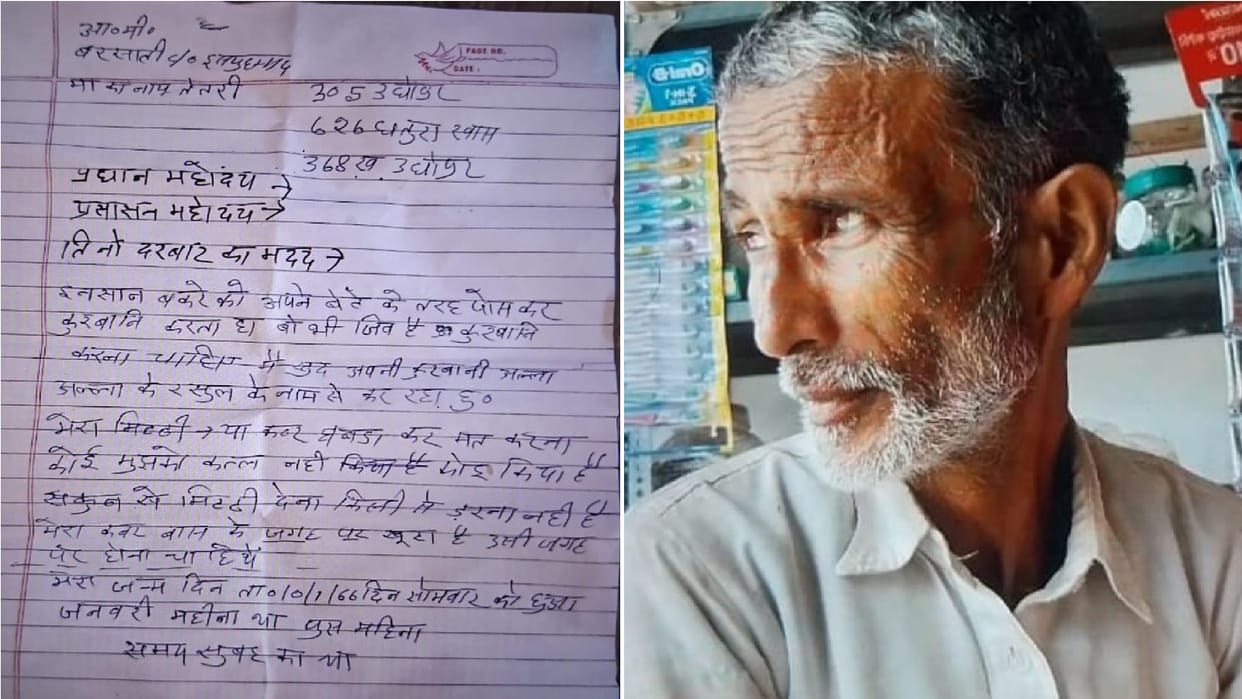 आ० मी०
बरसाती c/o
PAGE NO.
DATE:
मा का नाम तेतरी
305 उधोपुर
626 धतुरा खास
368 ख. उधोपुर
प्रधान महोदय →
प्रसासन महोदय →
तिनो दरबार का मदद →
इनसान बकरे को अपने बेटे के तरह पोस कर
कुरबानि करता है। वो भी जिव है कुरबानि
करना चाहिए मै खुद अपनी कुरबानी अल्ला
अल्ला के रसुल के नाम से कर रहा हु०
मेरा मिटटी → या कबर घबडा कर मत करना
कोई मुझको कत्ल नही किया है
सकुन से मिटटी देना किसी से डरना नही है
मेरा कबर बास के जगह पर खूटा है उसी जगह
पर होना चाहिये
मेरा जन्म दिन ता० दिन सोमवार को हुआ
जनवरी महीना था पुस महिना
समय सुबह का था
Oral-B
3-IN-1
PACK
10